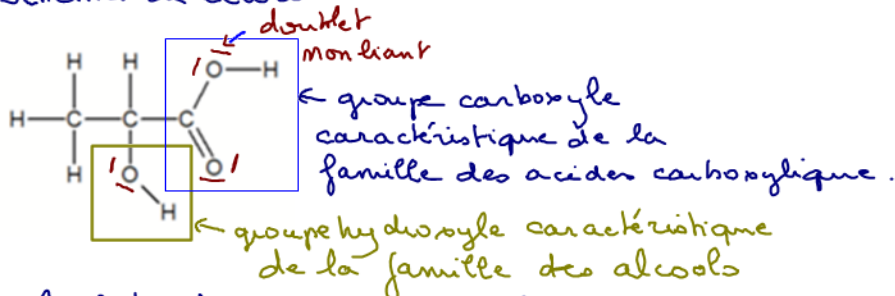 doublet
non liant
H H O H
← groupe carboxyle
H C C C
caractéristique de la
H O O
famille des acides carboxylique.
H
← groupe hydroxyle caractéristique
de la famille des alcools